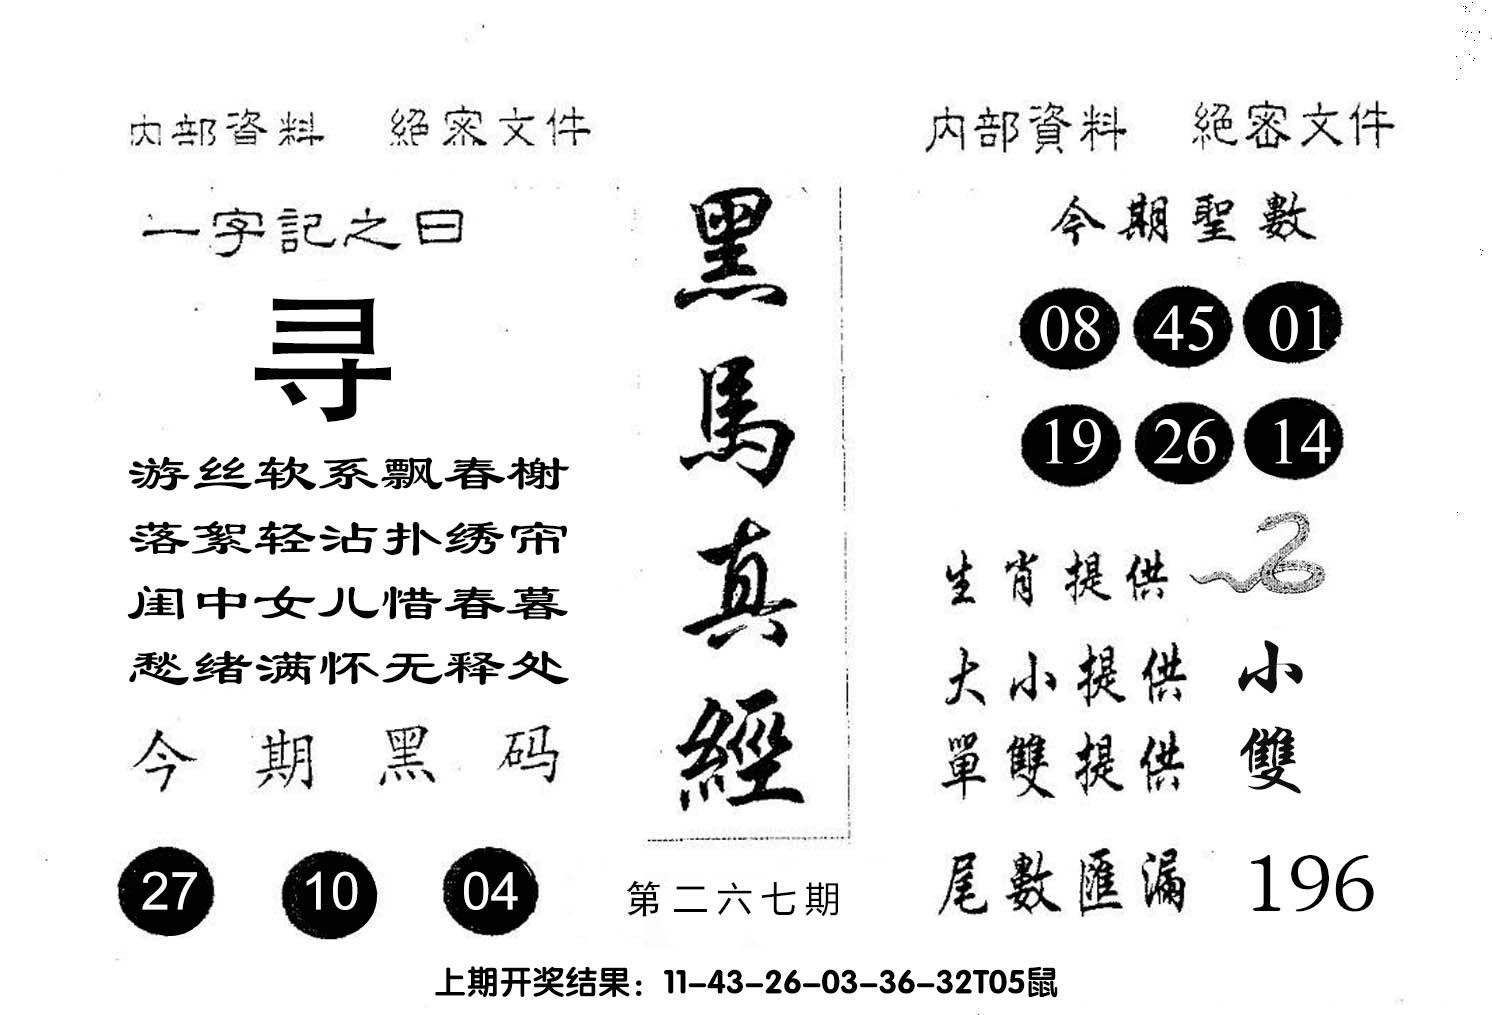 內部資料 絕密文件
一字記之曰
寻
游丝软系飘春榭
落絮轻沾扑绣帘
闺中女儿惜春暮
愁绪满怀无释处
今期黑码
27 10 04
黑馬真經
第二六七期
內部資料 絕密文件
今期聖數
08 45 01
19 26 14
生肖提供
大小提供 小
單雙提供 雙
尾數匯漏 196
上期开奖结果：11-43-26-03-36-32T05鼠